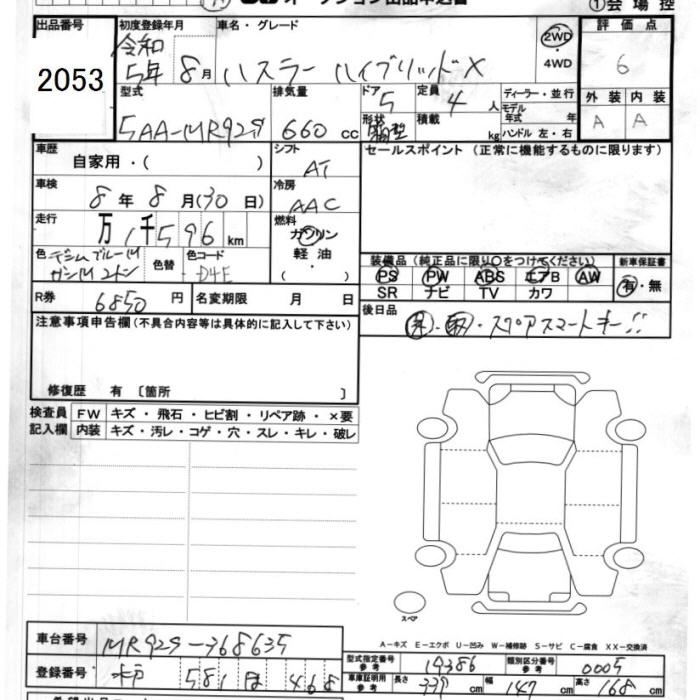 オークション出品申込書 ①会場控
出品番号 初度登録年月 車名・グレード 評価点
2053 令和 5年 8月 ハスラー ハイブリッドX 2WD 4WD 6
型式 排気量 ドア 定員 ディーラー・並行 外装 内装
5AA-MR92S 660 cc 5 4 人 モデル年式 年 A A
形状 積載 kg ハンドル 左・右
車歴 自家用・( ) シフト AT セールスポイント (正常に機能するものに限ります)
車検 8年 8月(30日) 冷房 AAC
走行 万 1千596 km 燃料 ガソリン
軽油・( )
色 デニムブルーM ガンM 2トン 色替 色コード D4E
装備品(純正品に限り○をつけてください) 新車保証書
PS PW ABS エアB AW 有・無
SR ナビ TV カワ
R券 6850 円 名変期限 月 日
後日品 スペアスマートキー!!
注意事項申告欄(不具合内容等は具体的に記入して下さい)
修復歴 有 〔箇所 〕
検査員 FW キズ・飛石・ヒビ割・リペア跡・×要
記入欄 内装 キズ・汚レ・コゲ・穴・スレ・キレ・破レ
スペア
A-キズ E-エクボ U-凹み W-補修跡 S-サビ C-腐食 XX-交換済
車台番号 MR92S-368635
型式指定番号 参考 19386 類別区分番号 参考 0005
登録番号 水戸 581 ほ 468
車庫証明用 参考 長さ 339 cm 幅 147 cm 高さ 168 cm